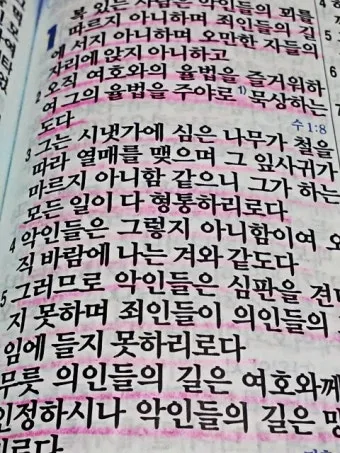 1 복 있는 사람은 악인들의 꾀를
따르지 아니하며 죄인들의 길
에 서지 아니하며 오만한 자들의
자리에 앉지 아니하고
2 오직 여호와의 율법을 즐거워하
여 그의 율법을 주야로 1)묵상하는
도다
수 1:8
3 그는 시냇가에 심은 나무가 철을
따라 열매를 맺으며 그 잎사귀가
마르지 아니함 같으니 그가 하는
모든 일이 다 형통하리로다
4 악인들은 그렇지 아니함이여 오
직 바람에 나는 겨와 같도다
5 그러므로 악인들은 심판을 견디
지 못하며 죄인들이 의인들의
임에 들지 못하리로다
무릇 의인들의 길은 여호와께
인정하시나 악인들의 길은 망
리로다